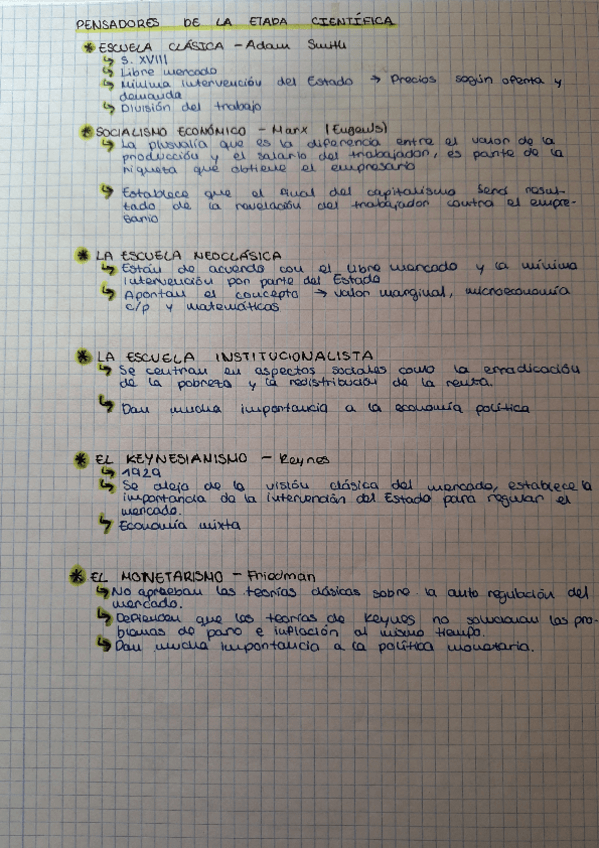 PENSADORES DE LA ETAPA CIENTÍFICA
* ESCUELA CLÁSICA - Adam Smith
↳ S. XVIII
↳ Libre mercado
↳ Mínima intervención del Estado → Precios según oferta y
demanda
↳ División del trabajo
* SOCIALISMO ECONÓMICO - Marx
↳ La plusvalía que es la diferencia entre el valor de la
producción y el salario del trabajador, es parte de la
riqueza que obtiene el empresario
↳ Establece que el final del capitalismo será resul-
tado de la revelación del trabajador contra el empre-
sario
* LA ESCUELA NEOCLÁSICA
↳ Están de acuerdo con el libre mercado y la mínima
intervención por parte del Estado
↳ Aportan el concepto → valor marginal, microeconomía
c/p y matemáticas
* LA ESCUELA INSTITUCIONALISTA
↳ Se centran en aspectos sociales como la erradicación
de la pobreza y la redistribución de la renta.
↳ Dan mucha importancia a la economía política
* EL KEYNESIANISMO - Keynes
↳ 1929
↳ Se aleja de la visión clásica del mercado, establece la
importancia de la intervención del Estado para regular el
mercado.
↳ Economía mixta
* EL MONETARISMO - Friedman
↳ No aprueban las teorías clásicas sobre la auto regulación del
mercado.
↳ Defienden que las teorías de Keynes no solucionan los pro-
blemas de paro e inflación al mismo tiempo.
↳ Dan mucha importancia a la política monetaria.